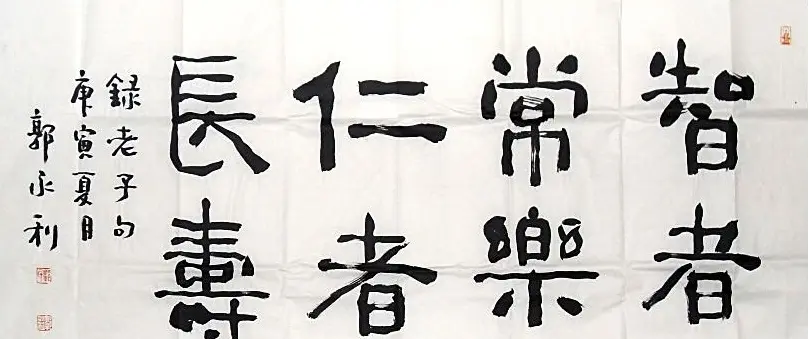 智者
常樂
仁者
長壽
錄老子句
庚寅夏月
郭永利